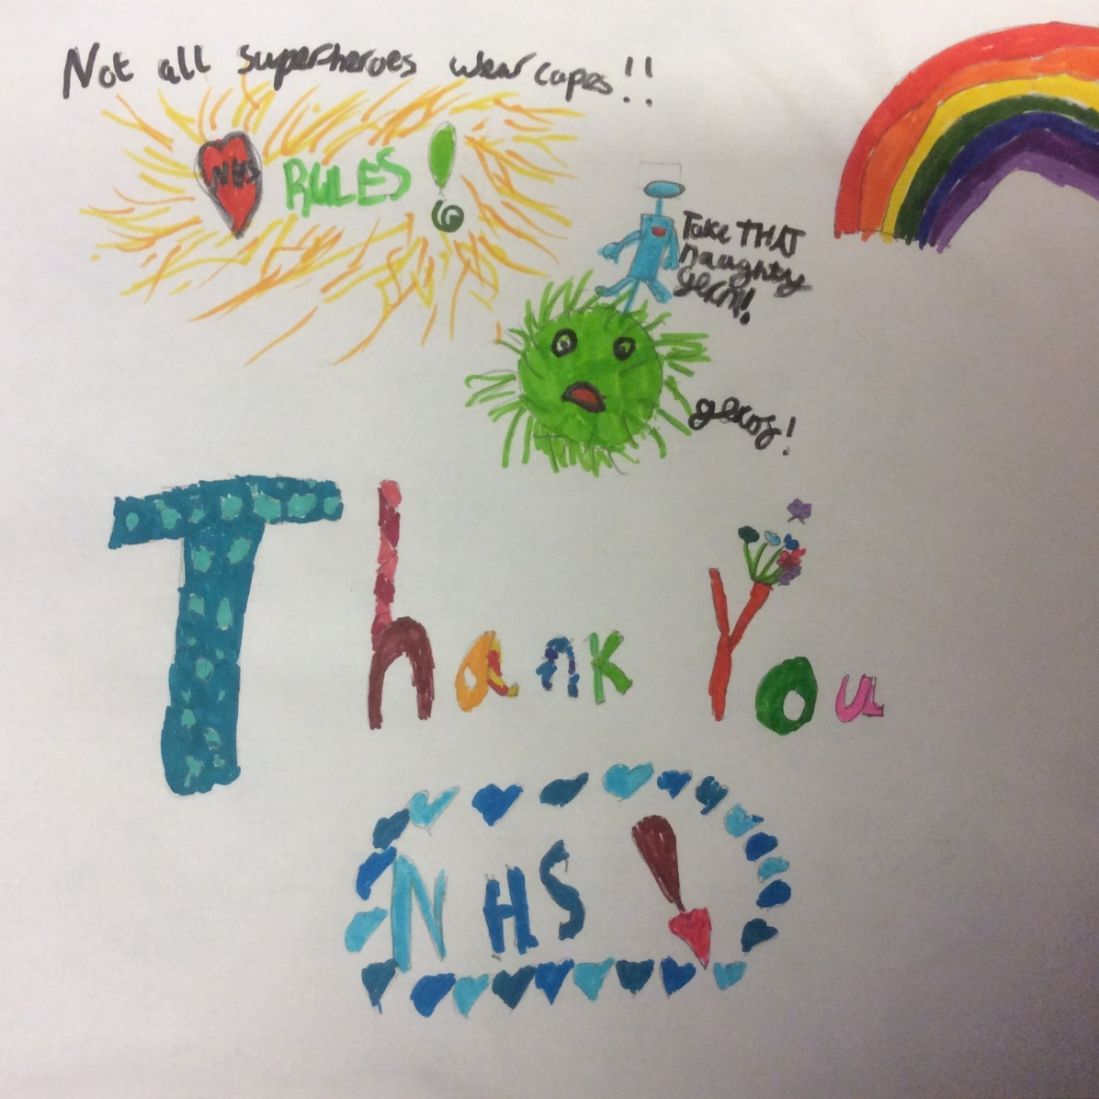 Not all superheroes wear capes!!
NHS RULES!
Take THAT
naughty
germ!
Thank You
NHS!